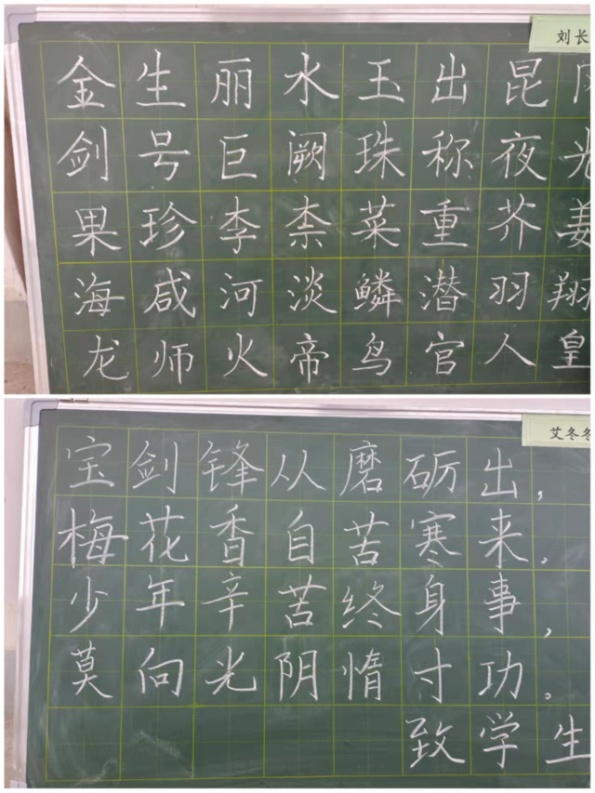 刘长
金生丽水玉出昆
剑号巨阙珠称夜光
果珍李柰菜重芥姜
海咸河淡鳞潜羽翔
龙师火帝鸟官人皇
艾冬冬
宝剑锋从磨砺出,
梅花香自苦寒来.
少年辛苦终身事,
莫向光阴惰寸功。
致学生